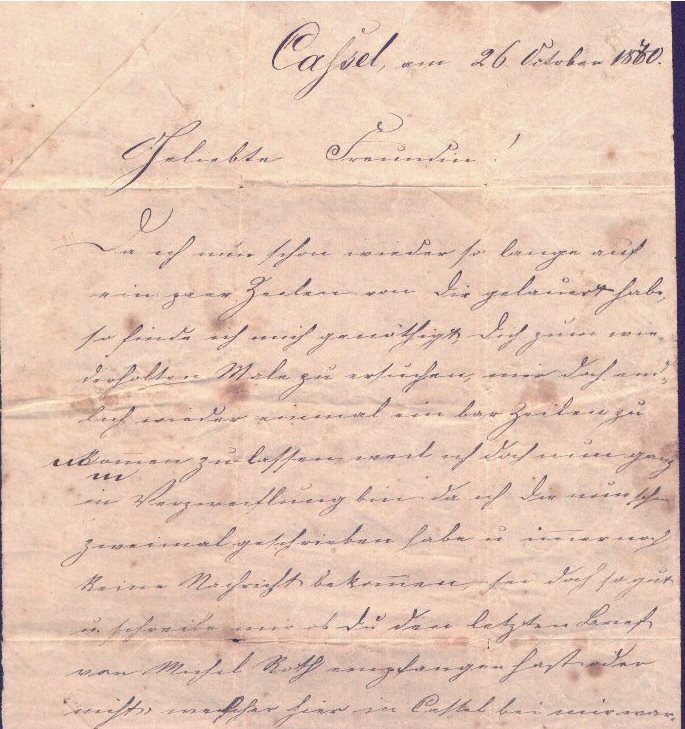 Cassel, am 26. October 1870.
Geliebte Freundin!
Da ich nun schon wieder so lange auf
ein paar Zeilen von Dir gelauert habe,
so finde ich mich genöthigt, Dich zum wie-
derholten Male zu ersuchen, mir doch end-
lich wieder einmal ein bar Zeilen zu
kommen zu lassen, weil ich doch nun ganz
in Verzweiflung bin, da ich Dir nun schon
zweimal geschrieben habe u. immer noch
keine Nachricht bekommen, sei doch so gut
u. schreibe mir ob Du den letzten Brief
von Michel Roth empfangen hast oder
nicht, welcher hier in Cassel bei mir war.